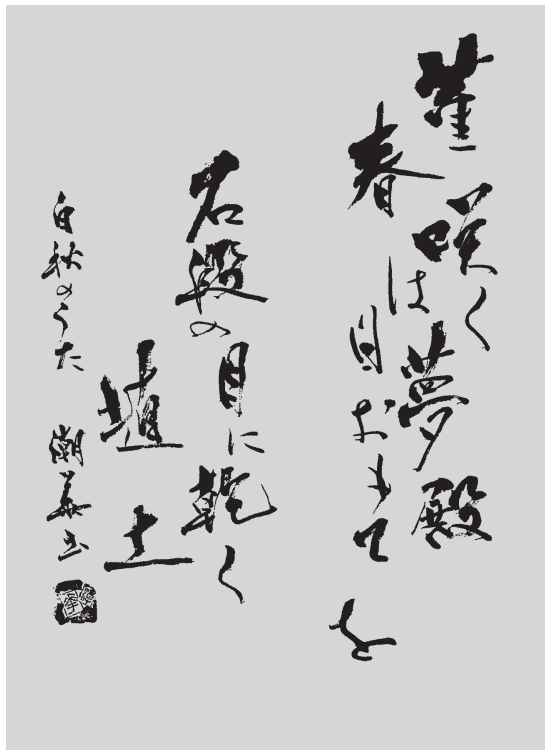 菫咲く
春は
夢殿
日おもてを
石段の
目に乾く
埴土
白秋のうた 潮華書